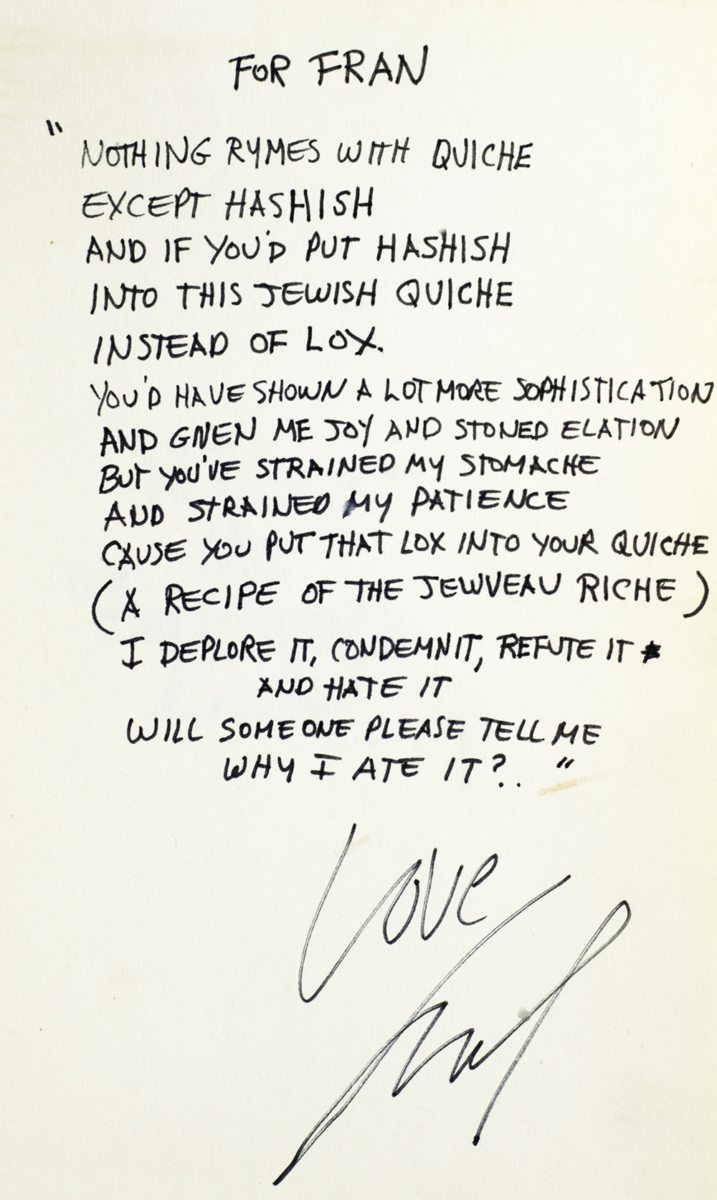 FOR FRAN
"NOTHING RYMES WITH QUICHE
EXCEPT HASHISH
AND IF YOU'D PUT HASHISH
INTO THIS JEWISH QUICHE
INSTEAD OF LOX.
YOU'D HAVE SHOWN A LOT MORE SOPHISTICATION
AND GIVEN ME JOY AND STONED ELATION
BUT YOU'VE STRAINED MY STOMACHE
AND STRAINED MY PATIENCE
CAUSE YOU PUT THAT LOX INTO YOUR QUICHE
(A RECIPE OF THE JEWVEAU RICHE)
I DEPLORE IT, CONDEMN IT, REFUTE IT
AND HATE IT
WILL SOMEONE PLEASE TELL ME
WHY I ATE IT?.."
Love